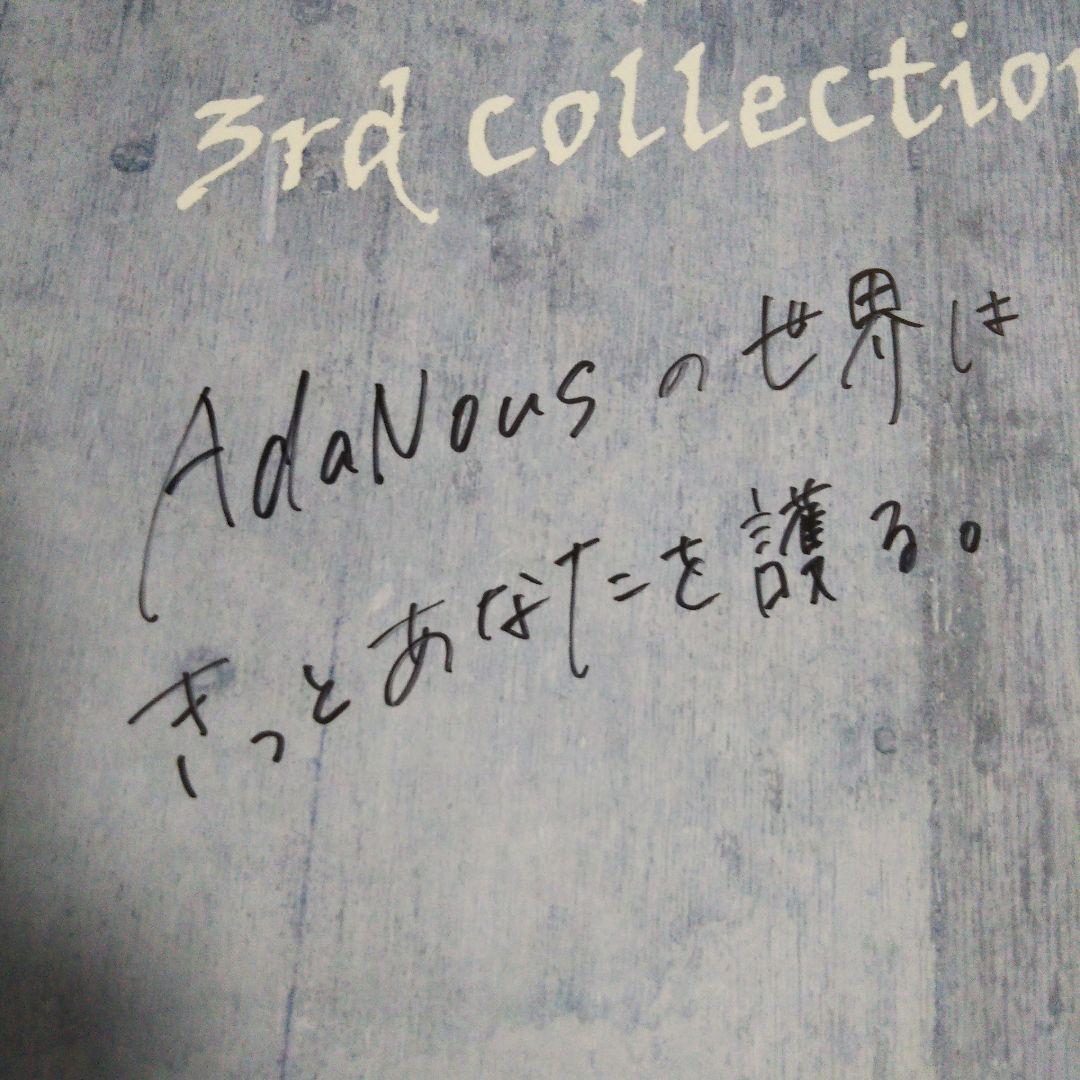 3rd collection
AdaNousの世界は
きっとあなたを護る。